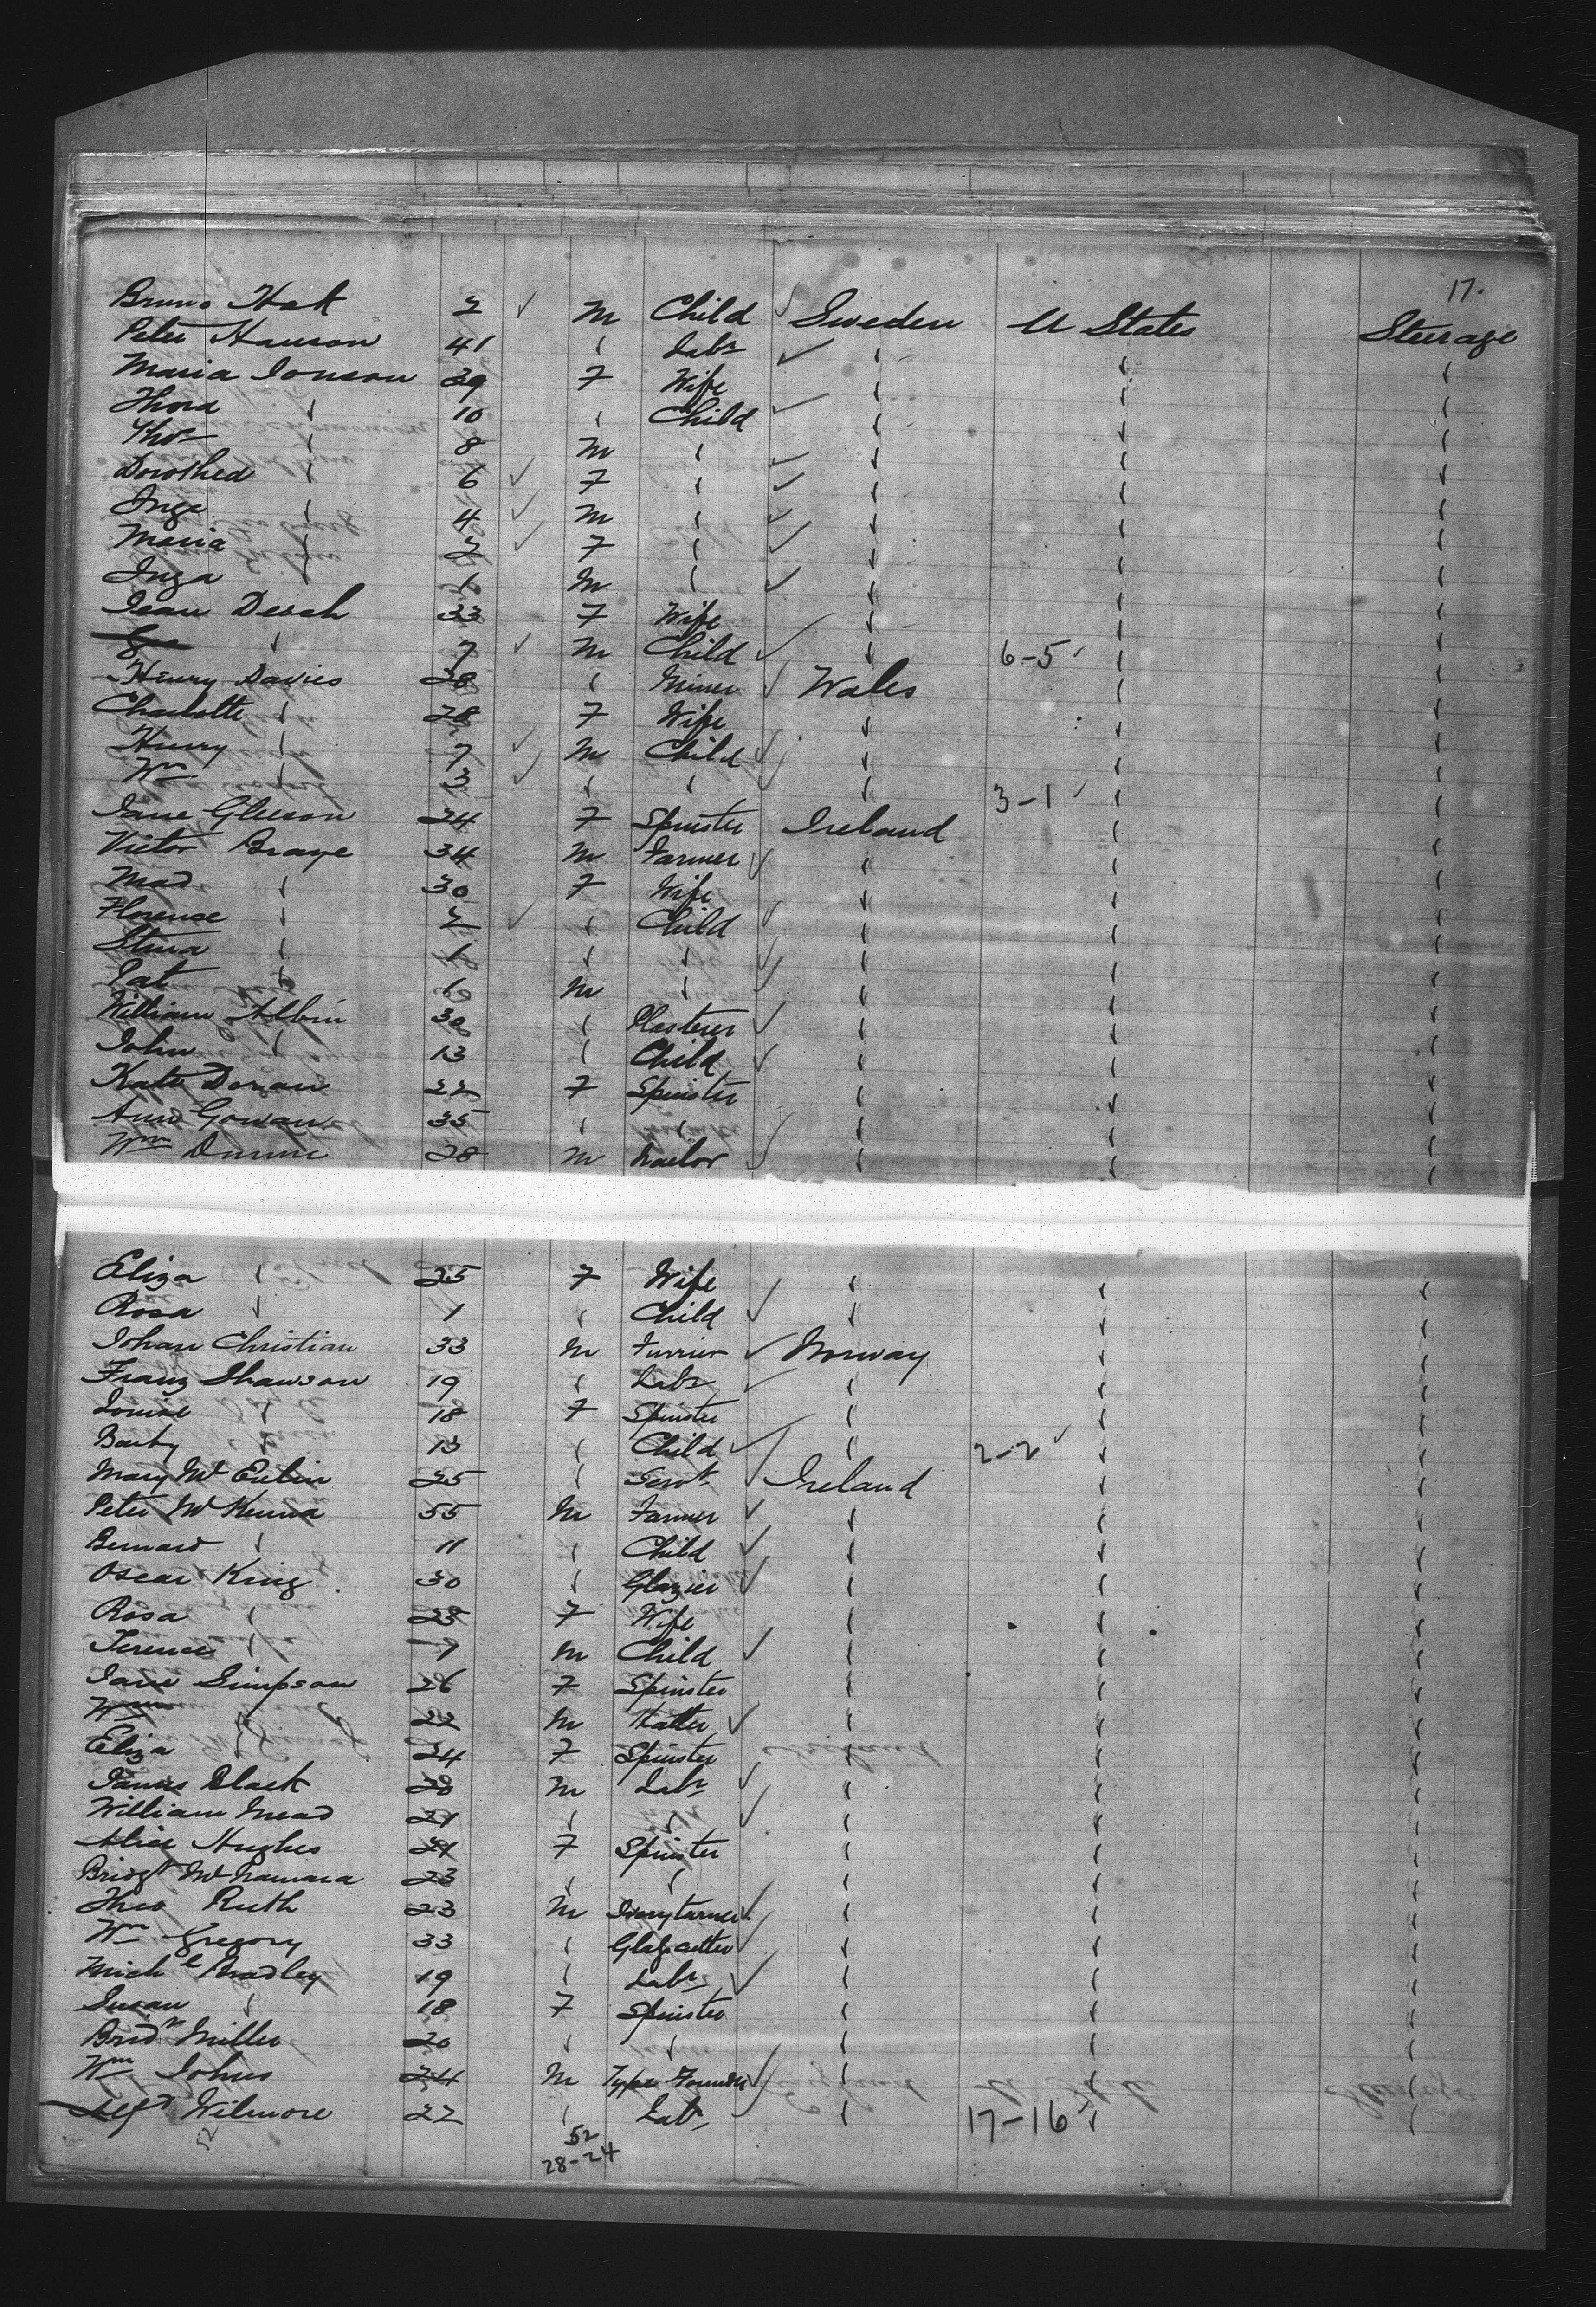 17.
Bruno Hak 2 ✓ M Child Sweden U States Steerage
Peter Hanson 41 " Labr " " "
Maria Jonson 39 F Wife " " "
Thora " 10 " Child " " "
Thos " 8 M " " " "
Dorothea " 6 ✓ F " " " "
Inge " 4 ✓ M " " " "
Maria " 2 ✓ F " " " "
Inga " 1 M " " " "
Jean Desch 33 F Wife " " "
" 7 ✓ M Child " 6-5 " "
Henry Davies 28 " Miner Wales " "
Charlotte " 28 F Wife " " "
Henry " 7 ✓ M Child " " "
Wm " 3 ✓ " " " 3-1 " "
Jane Gleeson 24 F Spinster Ireland " "
Victor Braye 34 M Farmer " " "
Mad " 30 F Wife " " "
Florence " 2 ✓ " Child " " "
Stina " 1 " " " " "
Pat " 1 M " " " "
William Albin 30 " Plasterer " " "
John " 13 " Child " " "
Kate Doran 22 F Spinster " " "
Ann Gowan 35 " " " " "
Wm Dunne 28 M Sailor " " "
Eliza " 25 F Wife " " "
Rosa " 1 " Child " " "
Johan Christian 33 M Furrier Norway " "
Franz Shawson 19 " Labr " " "
Louise " 18 F Spinster " " "
Barby " 13 " Child " 2-2 " "
Mary Mc 25 " Servt Ireland " "
Peter McKenna 55 M Farmer " " "
Bernard " 11 " Child " " "
Oscar King 30 " Glazier " " "
Rosa " 25 F Wife " " "
Terence " 7 M Child " " "
Jane Simpson 26 F Spinster " " "
Wm " 22 M Hatter " " "
Eliza " 24 F Spinster " " "
James Black 28 M Labr " " "
William Mead 21 " " " " "
Alice Hughes 21 F Spinster " " "
Bridgt McNamara 23 " " " " "
Theo Ruth 23 M Ivory turner " " "
Wm Gregory 33 " Glass cutter " " "
Michl Bradley 19 " Labr " " "
Susan " 18 F Spinster " " "
Bridt Miller 20 " " " " "
Wm Johns 24 M Type Founder " " "
Alfd Wilmore 22 " Labr " 17-16 " "
52
52
28-24